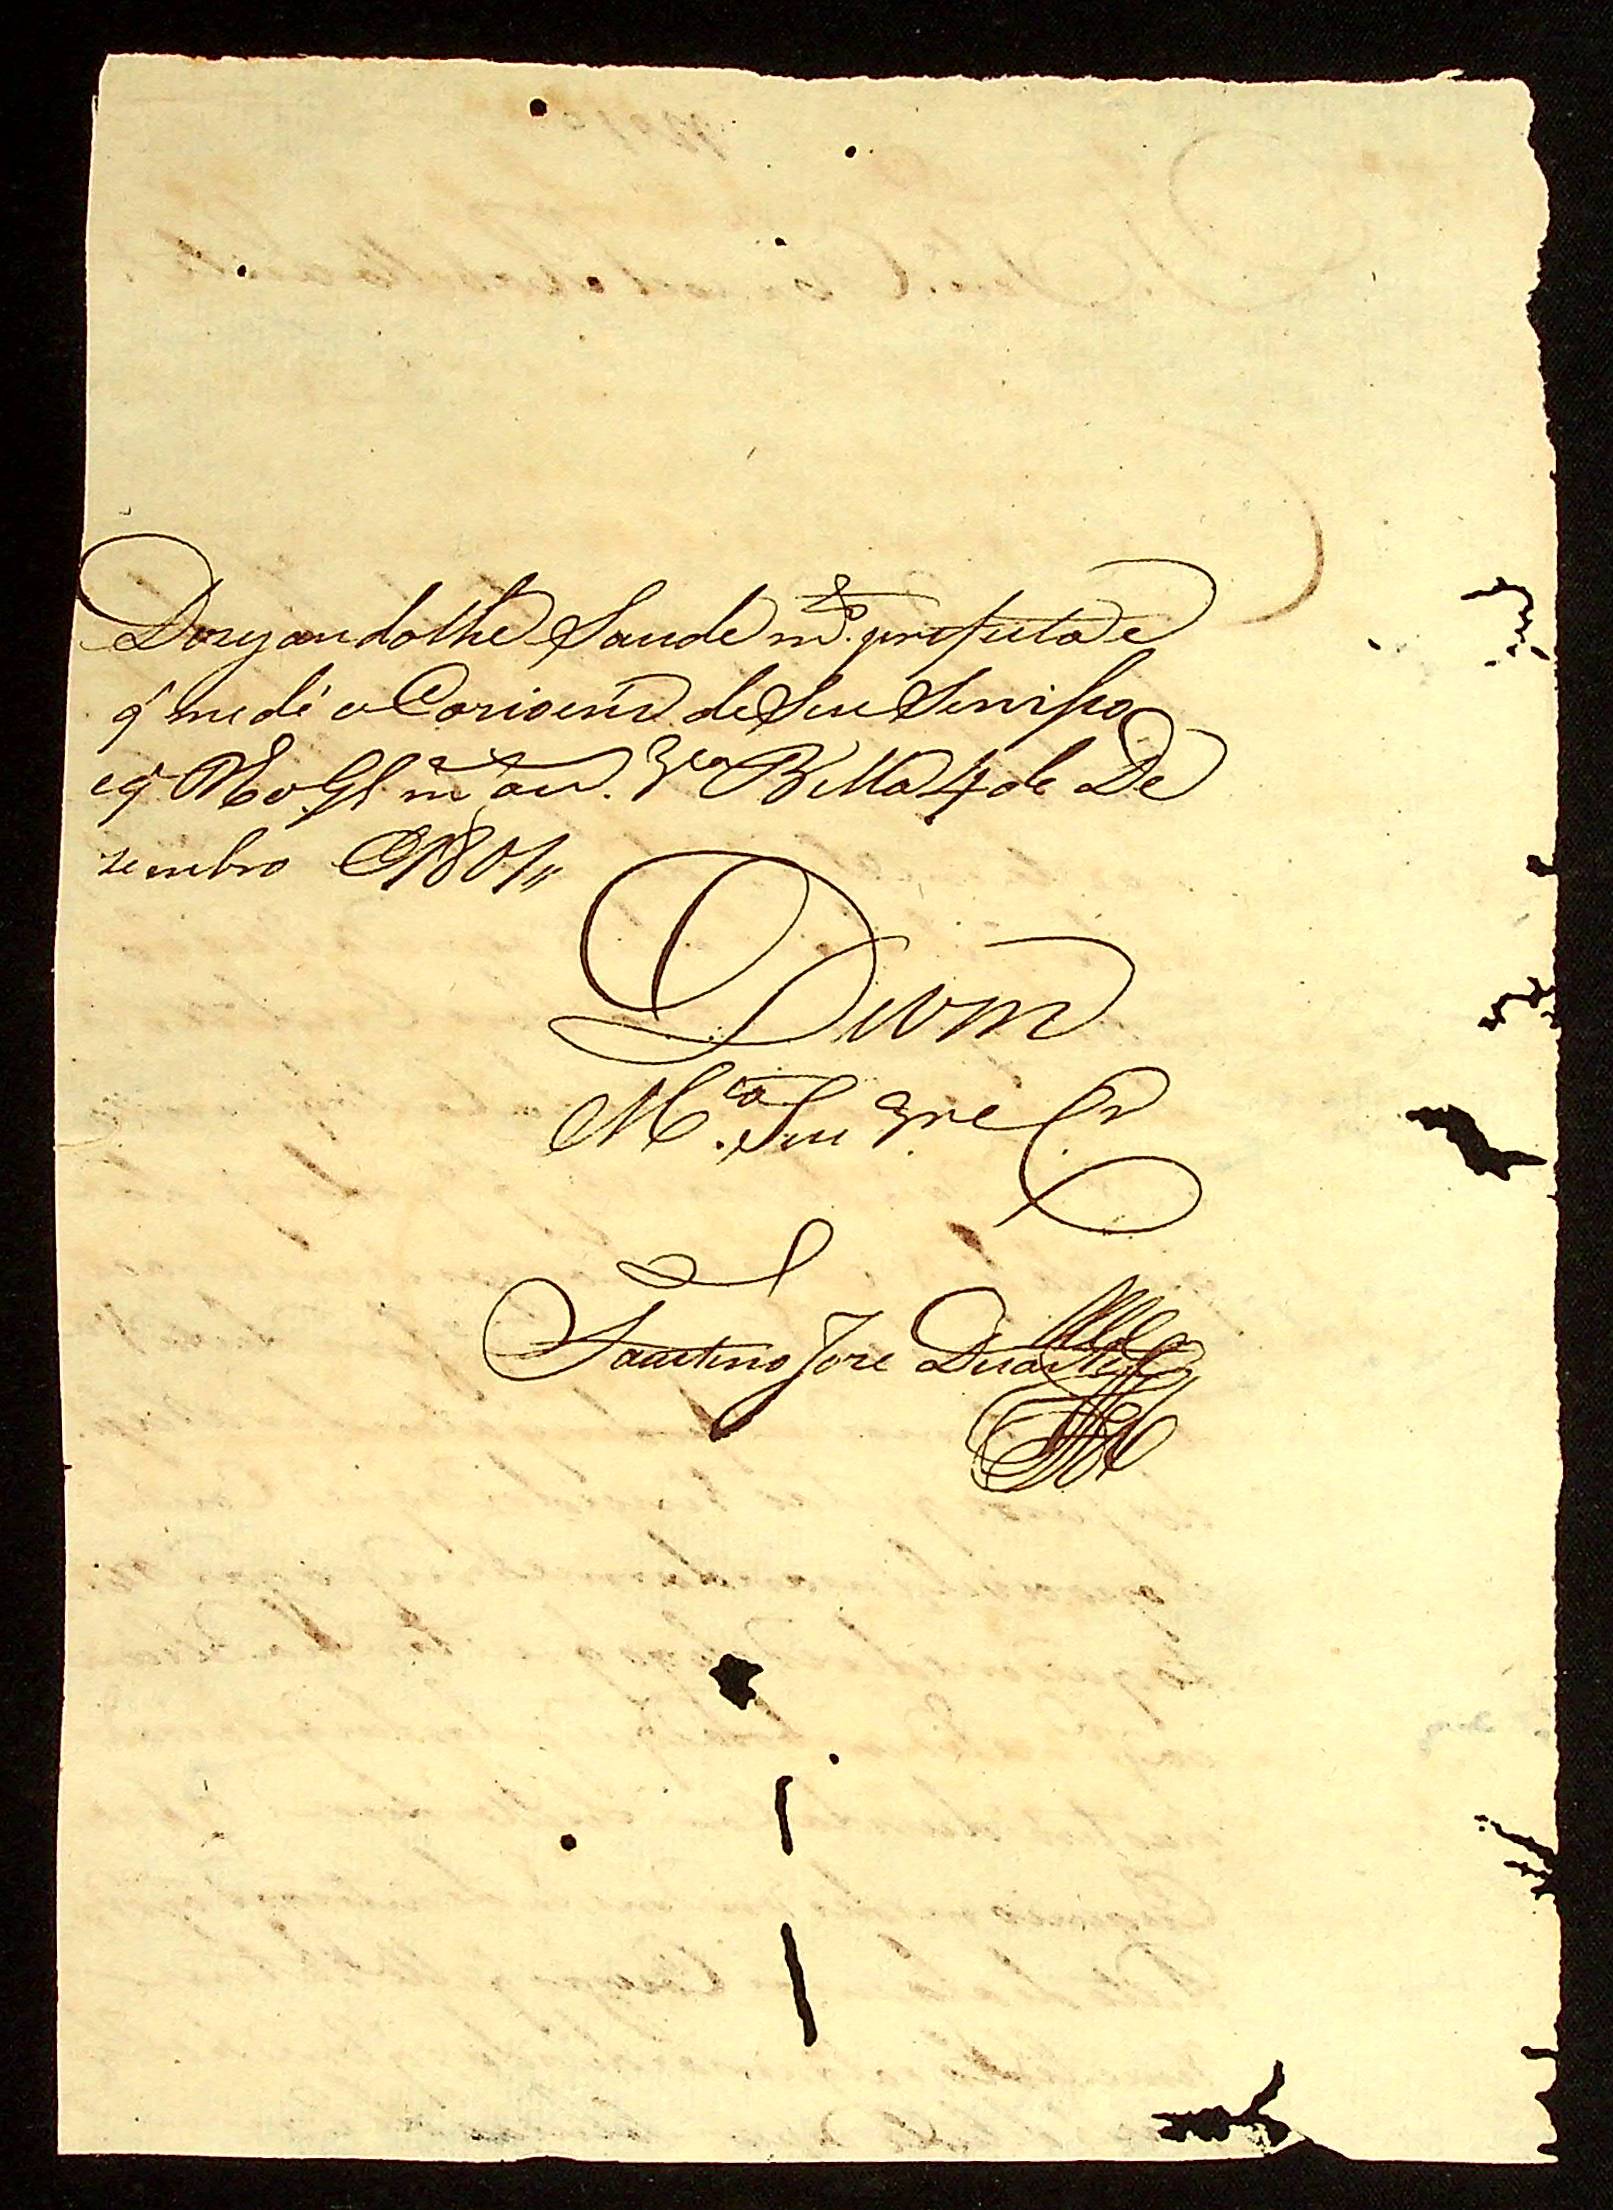 Dezejandolhe Saude m.to profeita e
q' me dé o Carioens de Seu Servisso
e q' D.s o g.de m. an. Billa 4 de De
zembro e 1801,,
De Vm
M.to Seu Cr
Faustino Joze Duarte